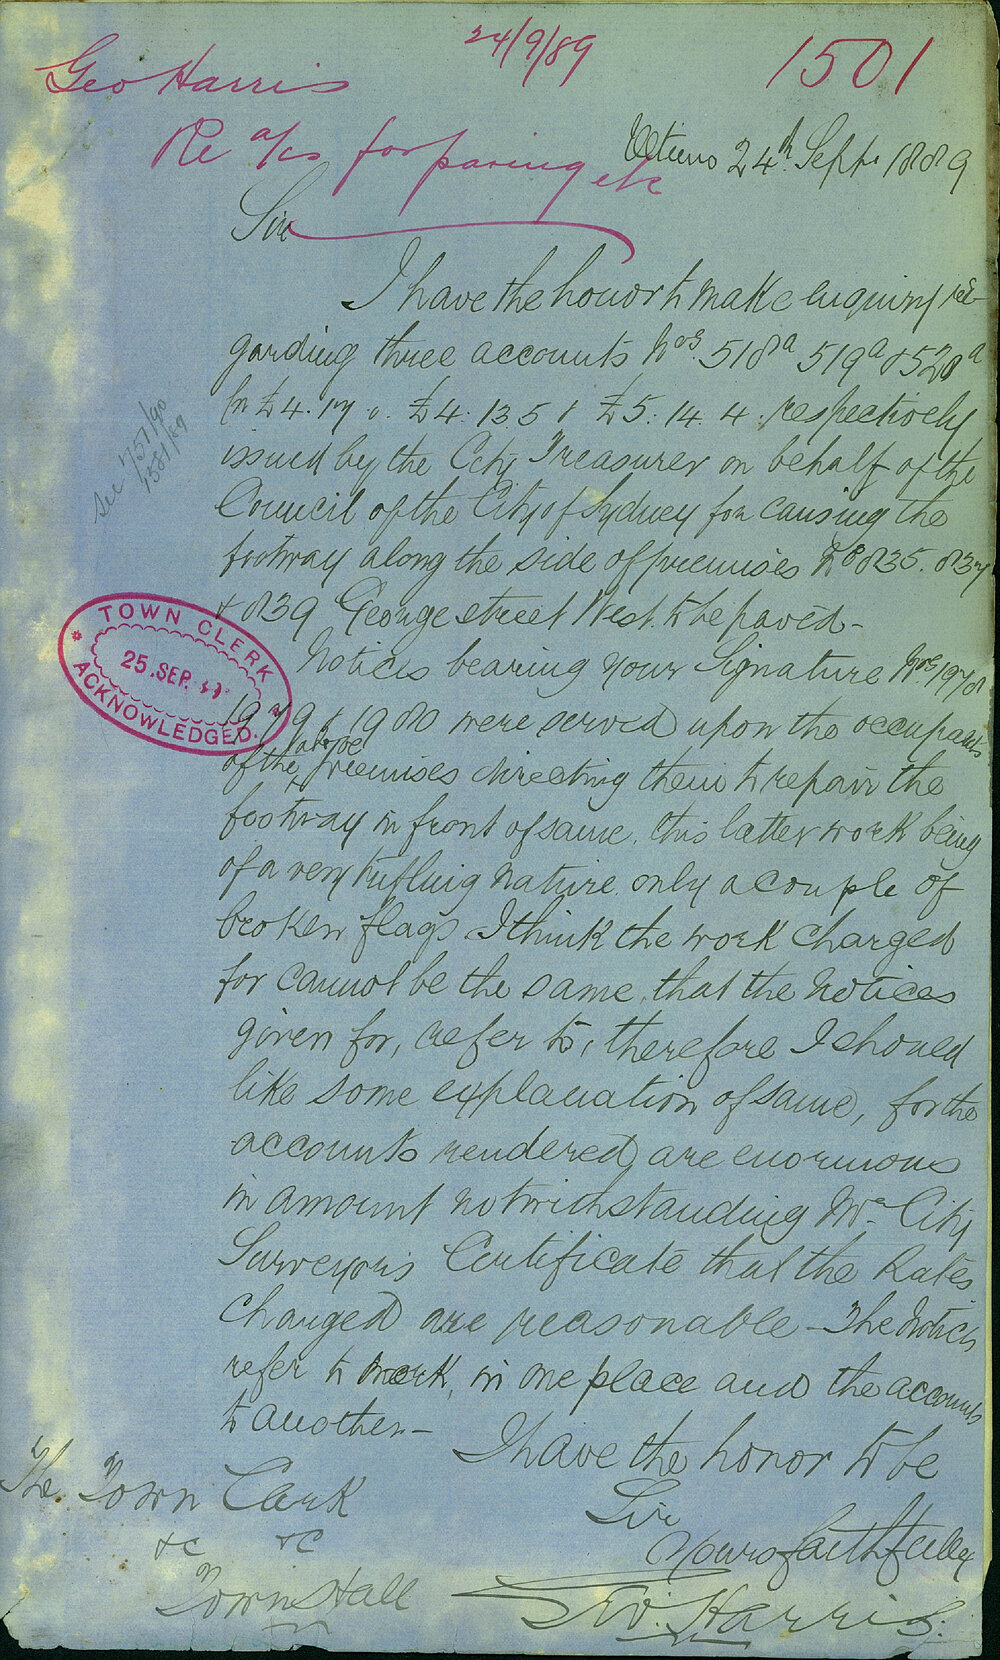 24/9/89
1501
Geo Harris
Re a/cs for paving etc
Ultimo 24th Sept. 1889
Sir
I have the honor to make enquiry re-
garding three accounts Nos. 518a 519a & 520a
for £4. 17. 0. £4. 13. 5 & £5. 14. 4. respectively
issued by the City Treasurer on behalf of the
Council of the City of Sydney for causing the
footway along the side of premises No 835. 837
& 839 George street West. to be paved-
Notices bearing your Signature Nos 1978
1979 & 1980 were served upon the occupants
of the above premises directing them to repair the
footway in front of same, this latter work being
of a very trifling nature only a couple of
broken flags I think the work charged
for cannot be the same, that the notices
given for, refer to, therefore I should
like some explanation of same, for the
accounts rendered are enormous
in amount notwithstanding Mr City
Surveyor's Certificate that the Rates
charged are reasonable - The Notices
refer to work, in one place and the accounts
to another-
I have the honor to be
Sir
Yours faithfully
Geo. Harris.
The Town Clerk
&c &c
Town Hall
see 751/90
1581/89
TOWN CLERK
25. SEP.
ACKNOWLEDGED.